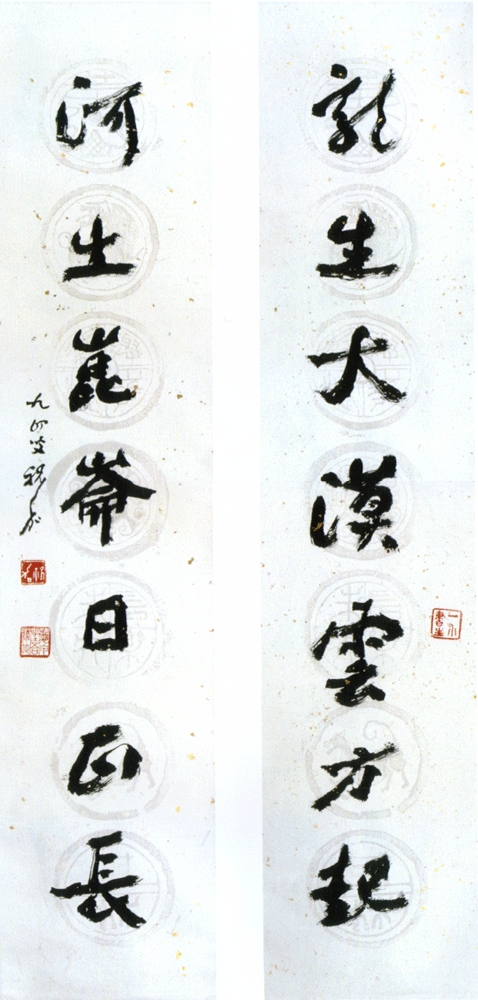 龍生大漠雲方起
河出崑崙日正長
九四叟